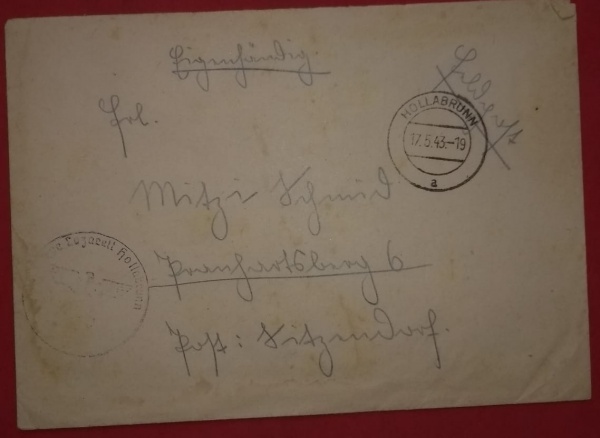 Eigenhändig.
Feldpost
HOLLABRUNN
17.5.43.-19
a
Frl.
Mitzi Schmid
Pranhartsberg 6
Post: Sitzendorf.
Lazarett Hollabrunn